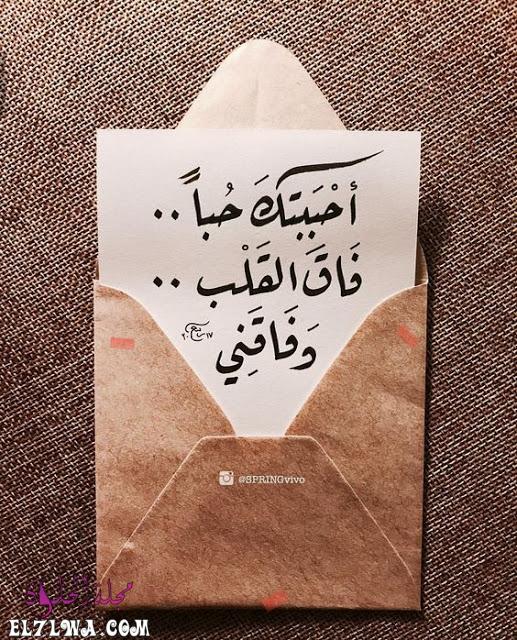 أحْبَبتكَ حُباً ..
فَاقَ القَلْب ..
وَفَاقَنِي
@SPRINGvivo
EL7LWA.COM